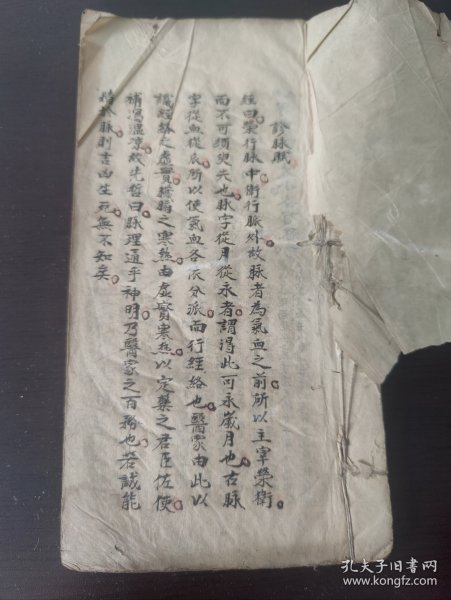 診脉賦
經曰榮行脉中衛行脈外故脉者為氣血之前所以主宰榮衛
而不可須臾失也脉字從月從永者謂得此可永歲月也古脉
字從血從𠂢所以使氣血各依分派而行經絡也醫家由此以
識經絡之虛實臟腑之寒熱由虛實寒熱以定藥之君臣佐使
補瀉溫凉故先哲曰脉理通乎神明乃醫家之百務也若誠能
精於脉則吉凶生死無不知矣
孔夫子旧书网
www.kongfz.com